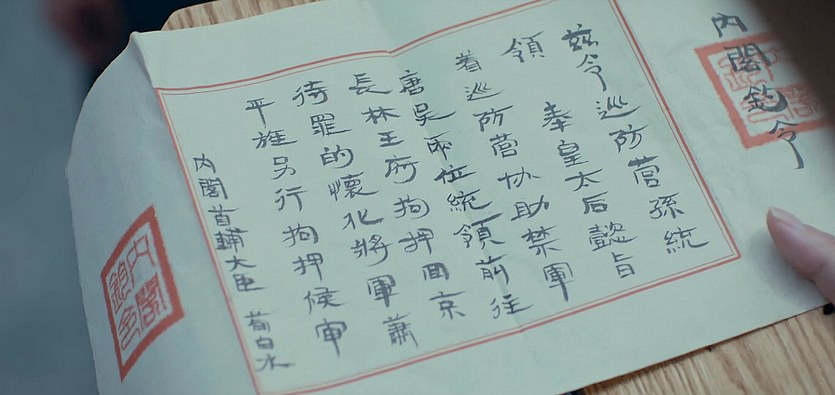 內閣鈞令
茲令巡防營孫統
領 奉皇太后懿旨
着巡防營協助禁軍
唐吳兩位統領前往
長林王府拘押回京
待罪的懷化將軍蕭
平旌另行拘押候審
內閣首輔大臣 荀白水
內閣
鈞令